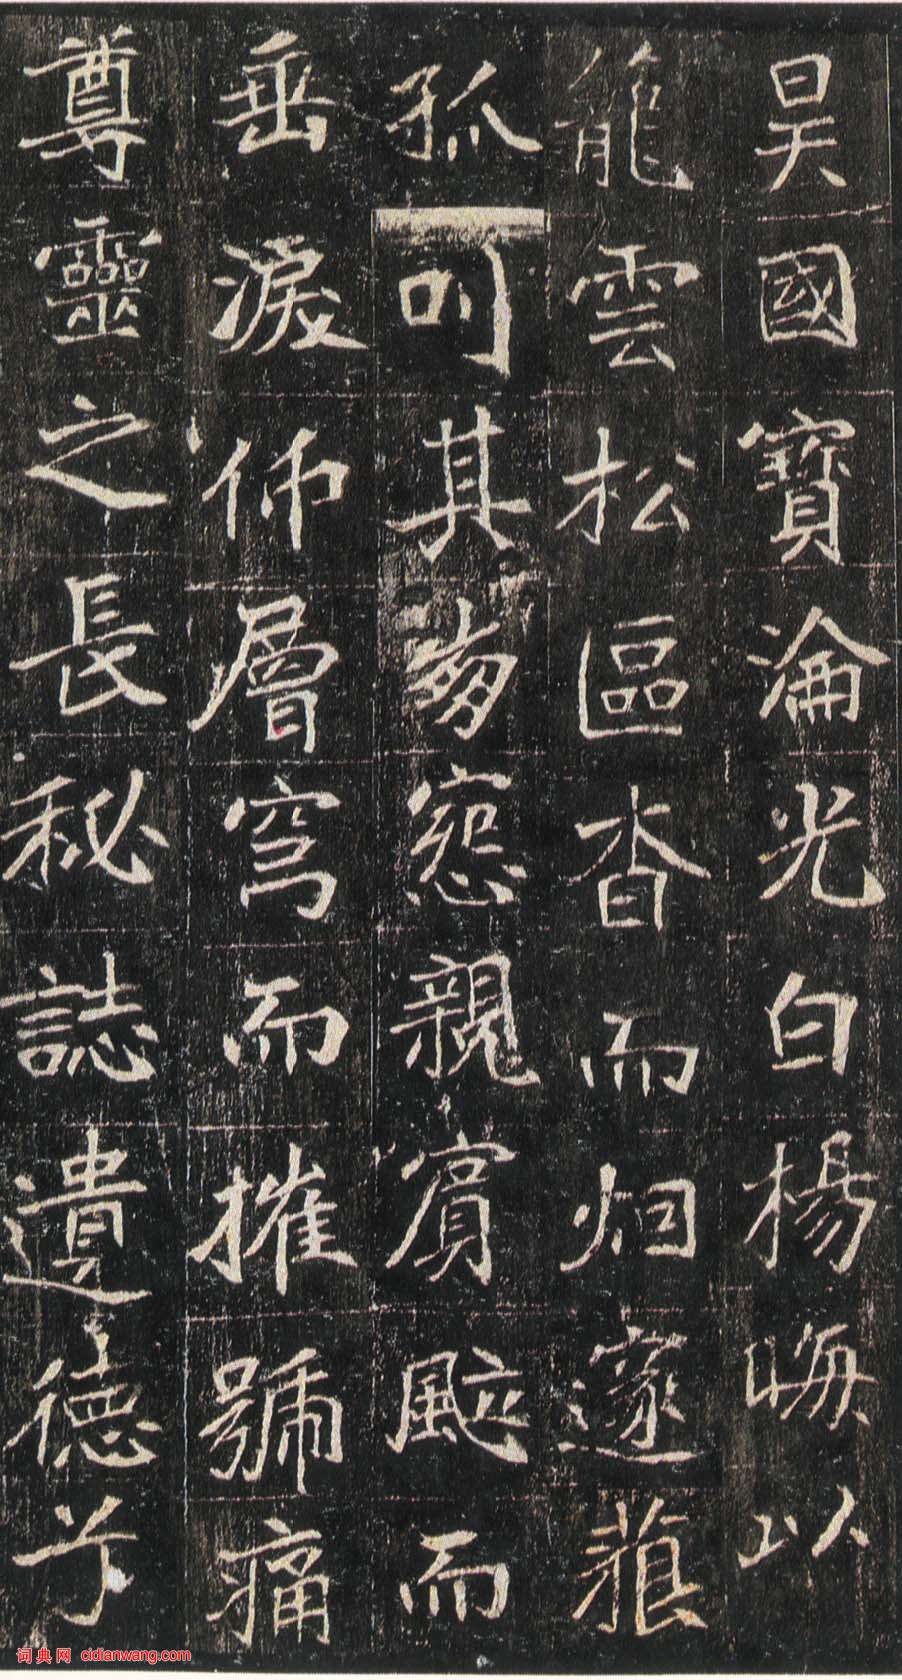 昊國寶淪光白楊晦以
籠雲松區杳而烟邃藐
孤叩其怨親賓颯而
垂淚仰層穹而摧號痛
尊靈之長秘誌遺德兮
词典网 cidianwang.com